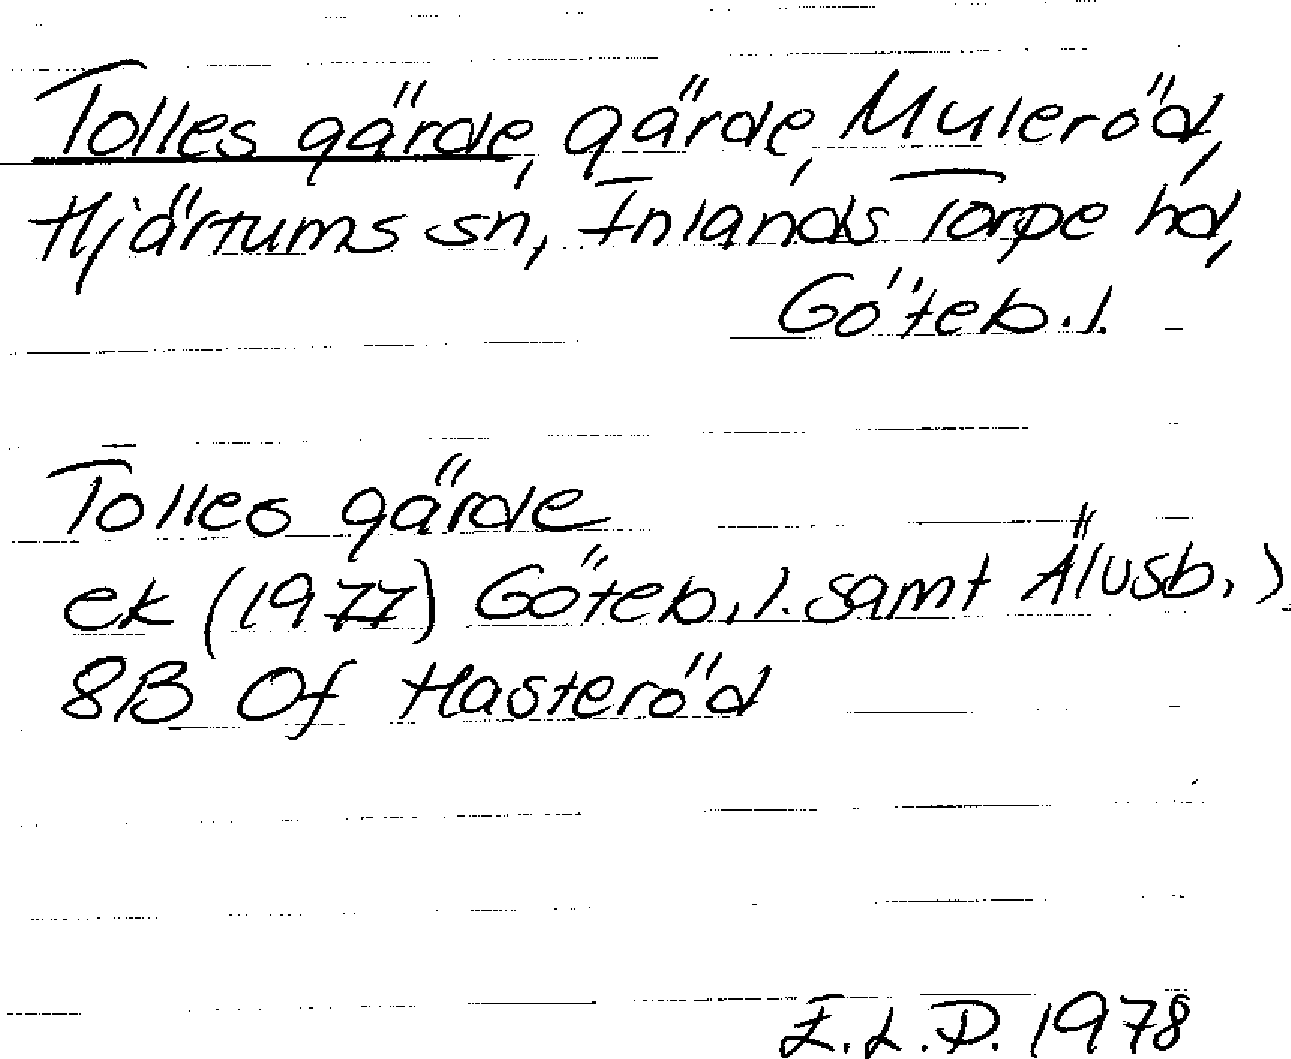 Tolles gärde, gärde, Muleröd,
Hjärtums sn, Inlands Torpe hd,
Göteb. l.
Tolles gärde
ek (1977) Göteb. l. samt Älvsb. l
8B 0f Hasteröd
E.L.D. 1978